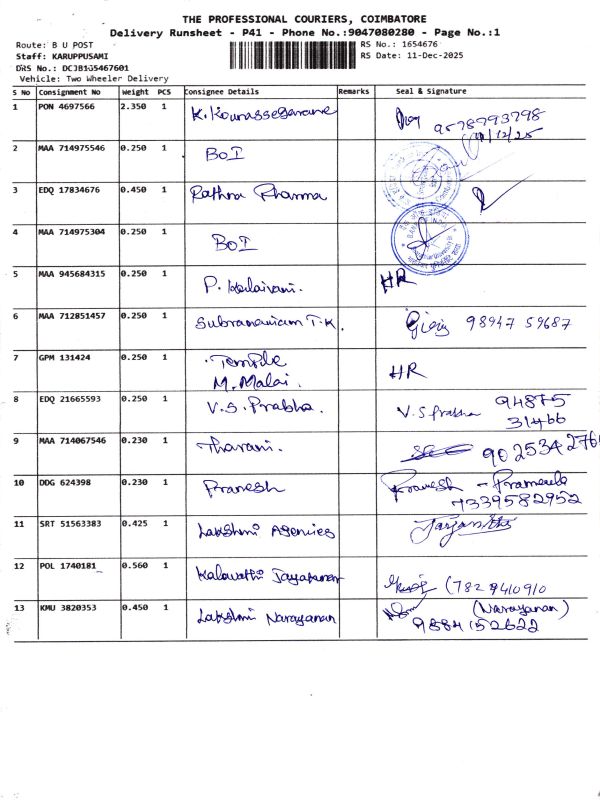 THE PROFESSIONAL COURIERS, COIMBATORE
Delivery Runsheet - P41 - Phone No.:9047080280 - Page No.:1
Route: B U POST
RS No.: 1654676
Staff: KARUPPUSAMI
RS Date: 11-Dec-2025
DRS No.: DCJB155467601
Vehicle: Two Wheeler Delivery
S No Consignment No Weight PCS Consignee Details Remarks Seal & Signature
1 PON 4697566 2.350 1 K. 9578793798
11/12/25
2 MAA 714975546 0.250 1 BOI
3 EDQ 17834676 0.450 1 Rathna Pharma
4 MAA 714975304 0.250 1 BOI
5 MAA 945684315 0.250 1 P. Kalaivani. HR
6 MAA 712851457 0.250 1 Subramaniam T.K. 98947 59687
7 GPM 131424 0.250 1 Temple
M. Malai. HR
8 EDQ 21665593 0.250 1 V.S. Prabha. V.S Prabha 94875
31466
9 MAA 714067546 0.230 1 Tharani. 902534276
10 DDG 624398 0.230 1 Pranesh Pranesh - Prameela
7339582952
11 SRT 51563383 0.425 1 Lakshmi Agencies
12 POL 1740181 0.560 1 Kalavathi (782 9410910
13 KMU 3820353 0.450 1 Lakshmi Narayanan (Narayanan)
9884152622